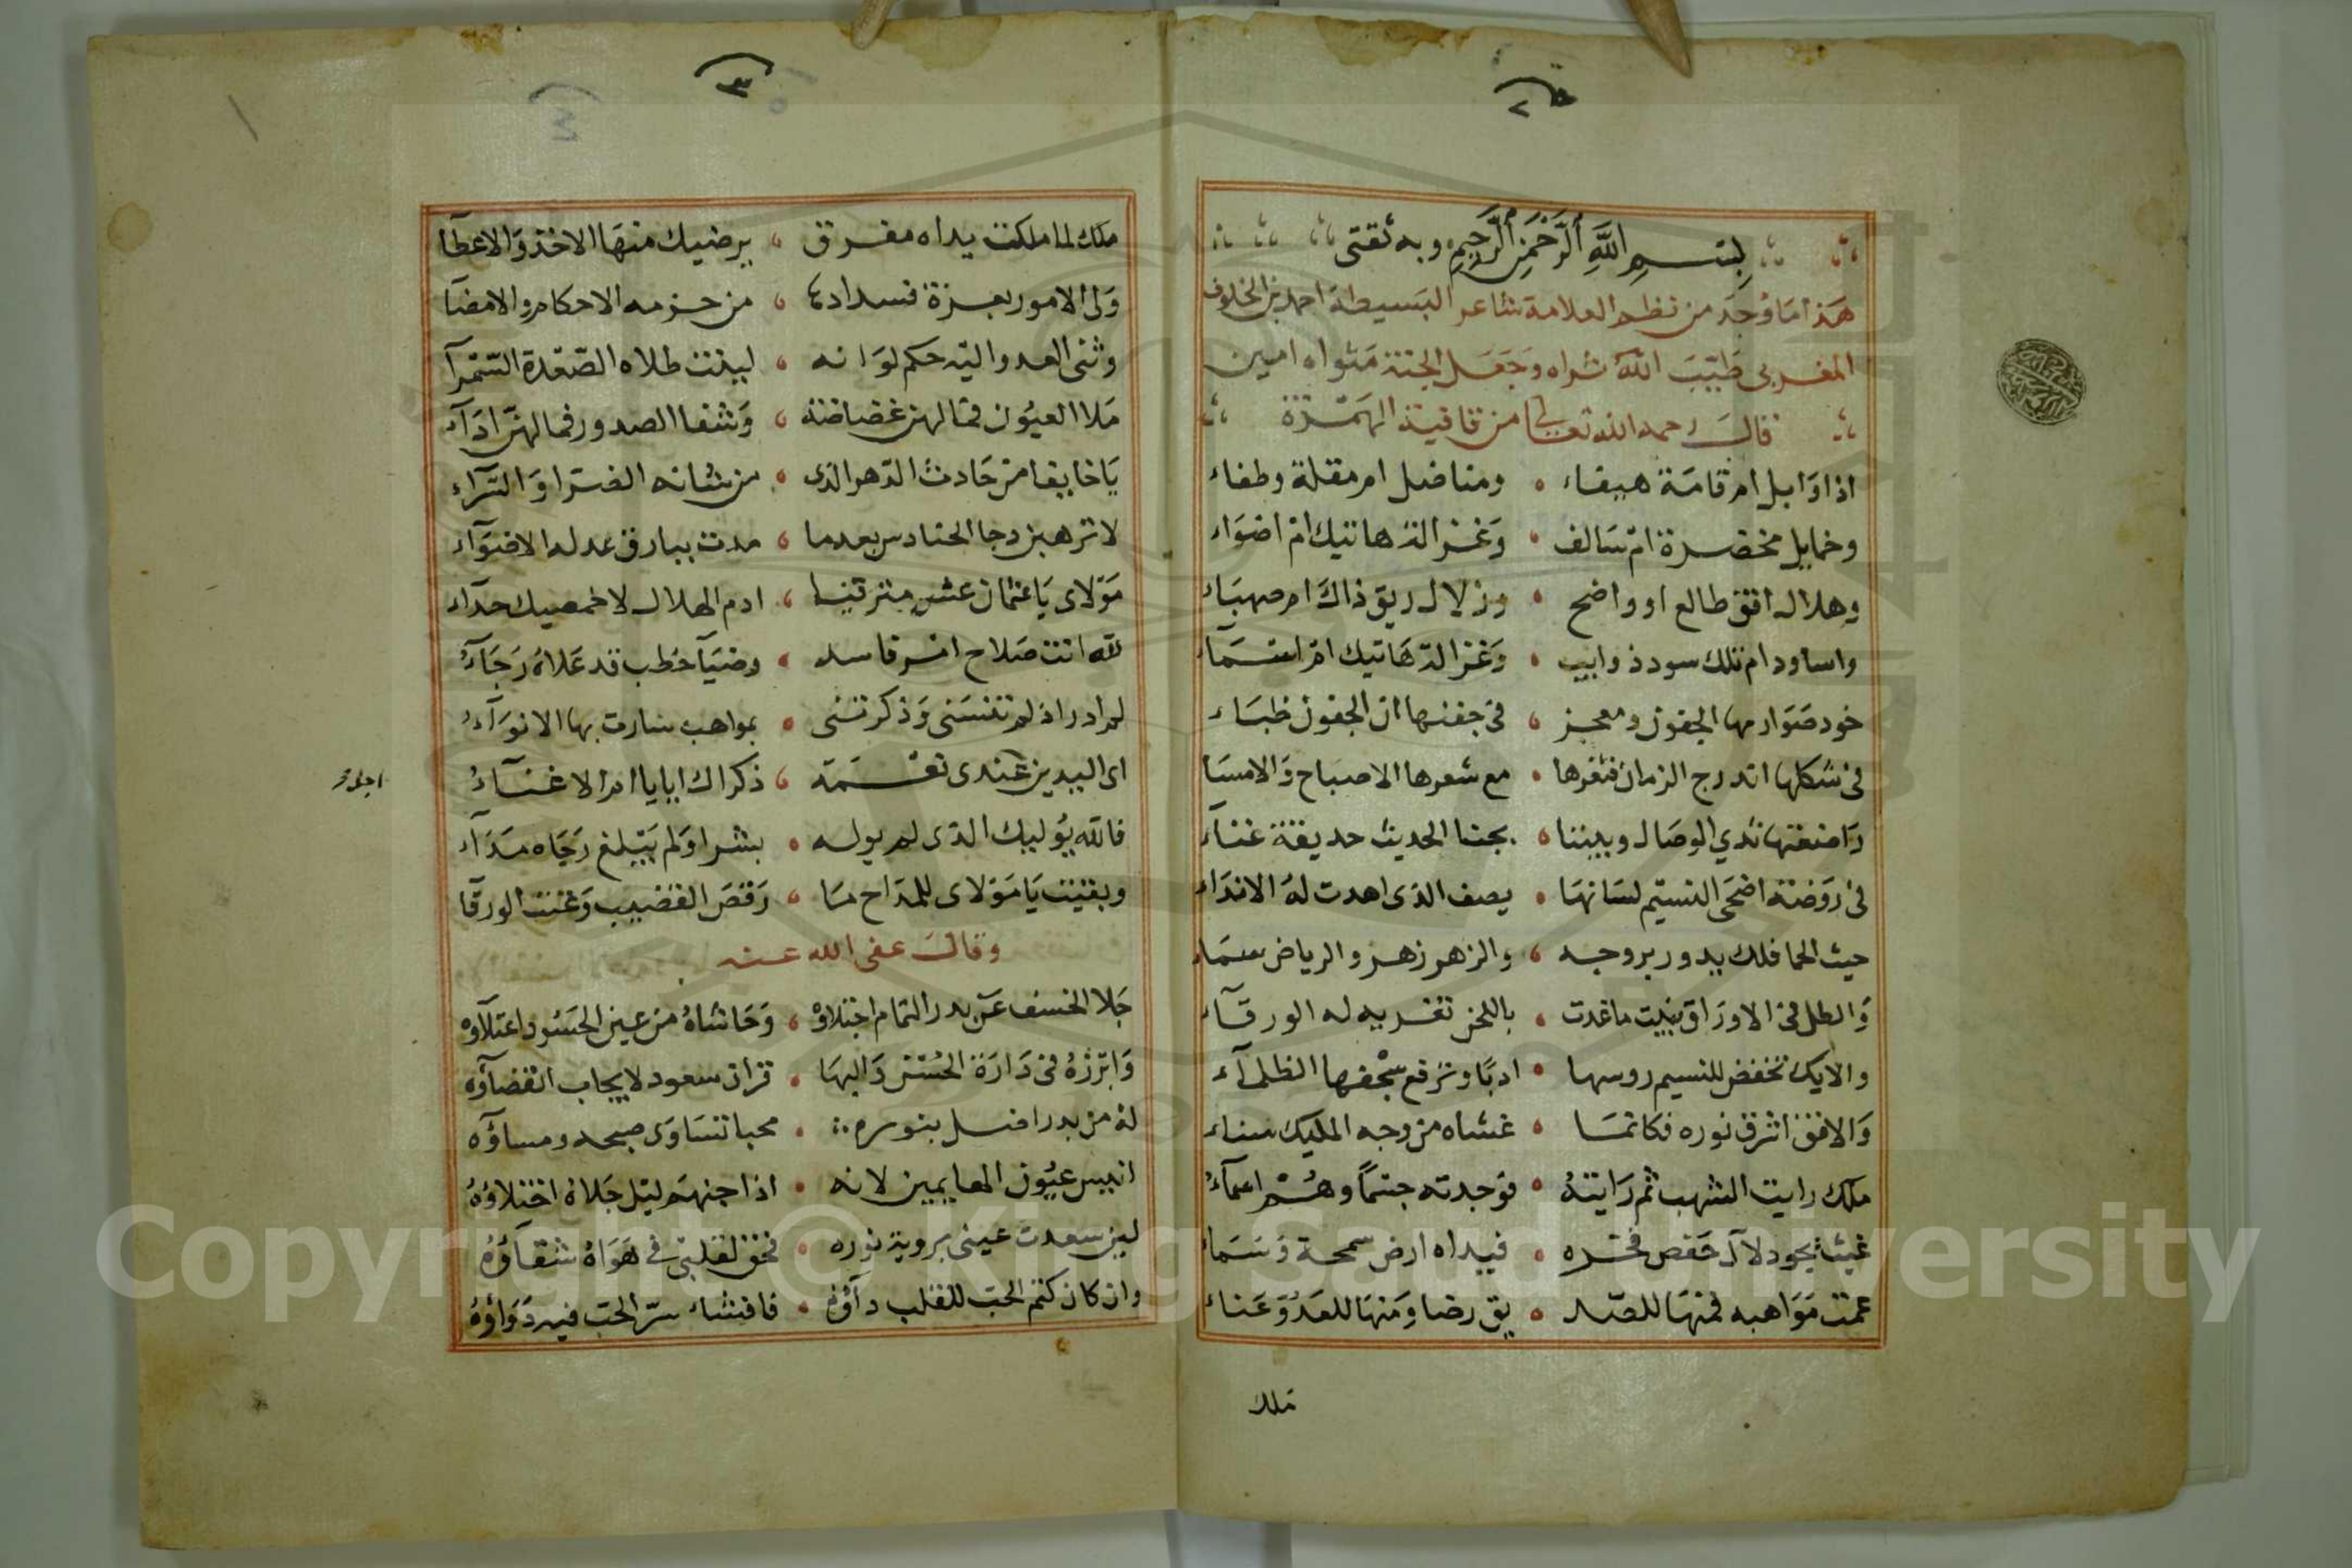 (٢
بِسْمِ اللَّهِ الرَّحْمَنِ الرَّحِيمِ وبه ثقتى
هَذا مَا وُجِدَ من نظم العلامة شاعر البَسيطة احمد بن الخلوف
المغربى طَيَّبَ الله ثراه وجَعَل الجنة مَثواه امين
قال رحمه الله تعالى من قافية الهَمْزة
اذا وَابل ام قامَة هيفاء ومناضل ام مقلة وطفاء
وخمايل مخضرة ام سَالف وَغز الدهاتيك ام اضوَاء
وهلال افق طالع او واضح وزلال ريق ذاك ام صهبَاء
واساود ام تلك سود ذوايب وَغز الدّهَاتيك امْ اسمَاء
خود صَوَارمها الجفون ومعجز فى جفنها ان الجفون ظبَاء
فى شكلها اندرج الزمان فثغرها مع شعرها الاصبَاح وَالامسَا
رَاضعتها ثدي الوصَال وبيننا بجنا الحديث حديقة غناء
فى رَوضة اضحَى النسيْم لسَانهَا يصف الذى اهدت لهُ الاندَاء
حيث الحما فلك يدور بروجه والزهر زهر والرياض سمَاء
وَالطل فى الاورَاق يثبت ماغدت باللحن تغريه له الورقآء
والايك تخفض للنسيم روسها ادبًا وترفع سجْفها الظلمآء
وَالافق اشرق نوره فكانمَا غشاه من وجه المليك سناء
ملك رايت الشهب ثم رَايتهُ فوجدته جتمًا وهُمْ اعمآءُ
غيث يجود لآل حَفص فخره فيداه ارض سمحة وَسَمَاء
عمت مَوَاهبه فمنهَا للصّد يق رضا وَمنهَا للعَدُوّ عَناء
ملك
(٣
ملك لما ملكت يداه مفرق يرضيك منهَا الاخذ وَالاعطآ
وَلى الامور بعزة فسدادها من حزمه الاحكام والامضآ
وثنى العدو اليه حكم لوَانه لينت طلاه الصّعْدة السّمْرآ
مَلا العيُون فما لهن غضاضة وَشفا الصدور فما لهنّ ادَآء
يَا خايفا من حَادث الدّهر الذى من شانه الضرا وَالسّرآء
لا ترهبن دجا الحنادس بعدما مدت ببارق عدله الاضوَآء
مَوْلاى يَا عثمان عش مترقيا ادم الهلال لاخمصيك حدآء
لله انت صَلاح امر فاسد وضيَآ خطب قد عَلاهُ رَجَآءُ
لم ادر اذ لم تنسَنى وَذكرتنى بمواهب سارت بها الانوَآءُ
اى اليدين عندى نعْمَة ذكراك ايايا ام الاغنآءُ
اجلـ
فالله يُوليك الذى لم يوله بشرا وَلم يَبْلغ رَجَاه مَدَآء
وبقيت يَا مَوْلاى للمدَاح مَا رَقصَ القضيب وَغنت الورقآ
وقال عفى الله عنه
جَلا الخسف عَن بدر التمام اجتلاؤه وَحَاشاهُ من عين الحسُود اعتلآؤه
وَابْرزهُ فى دَارَة الحُسْن وَالبهَا قران سعود لا يجاب انقضآؤه
لهُ من بدر افسل بنوره محيا تسَاوَى صبحه ومساؤه
انيس عيُون الهايمين لانه اذا جنهم ليْل جَلاهُ اختلاؤهُ
لين سعدت عينى بروية نوره فخق لقلبى فى هَوَاهُ شقآؤهُ
وان كان كتم الحبّ للقلب دآؤه فافشاء سرّ الحبّ فيه دَوَاؤهُ
Copyright © King Saud University